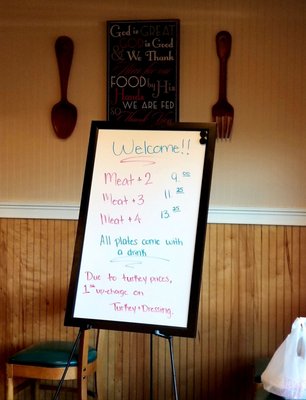 God is GREAT
& God is Good
& We Thank
Him for our
FOOD by His
Hands
SO WE ARE FED
Welcome!!
Meat + 2 9.00
Meat + 3 11.25
Meat + 4 13.25
All plates come with
a drink
Due to turkey prices,
1.00 up-charge on
Turkey + Dressing.